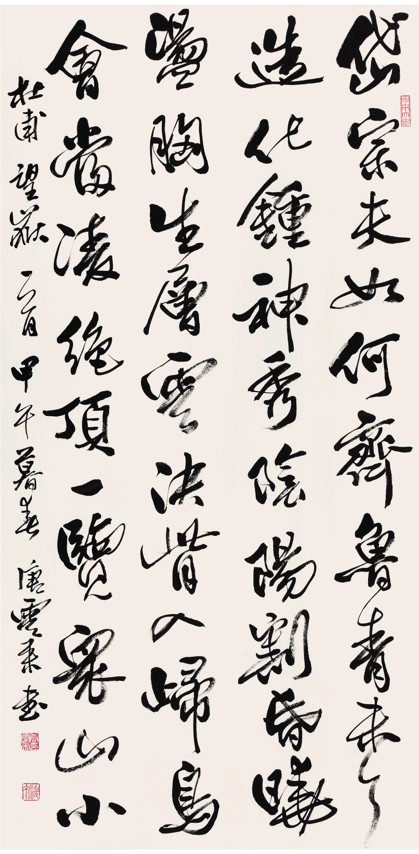 岱宗夫如何齊魯青未了
造化鍾神秀陰陽割昏曉
盪胸生層雲決眥入歸鳥
會當凌絕頂一覽眾山小
杜甫望嶽一首甲午暮春唐雲來書